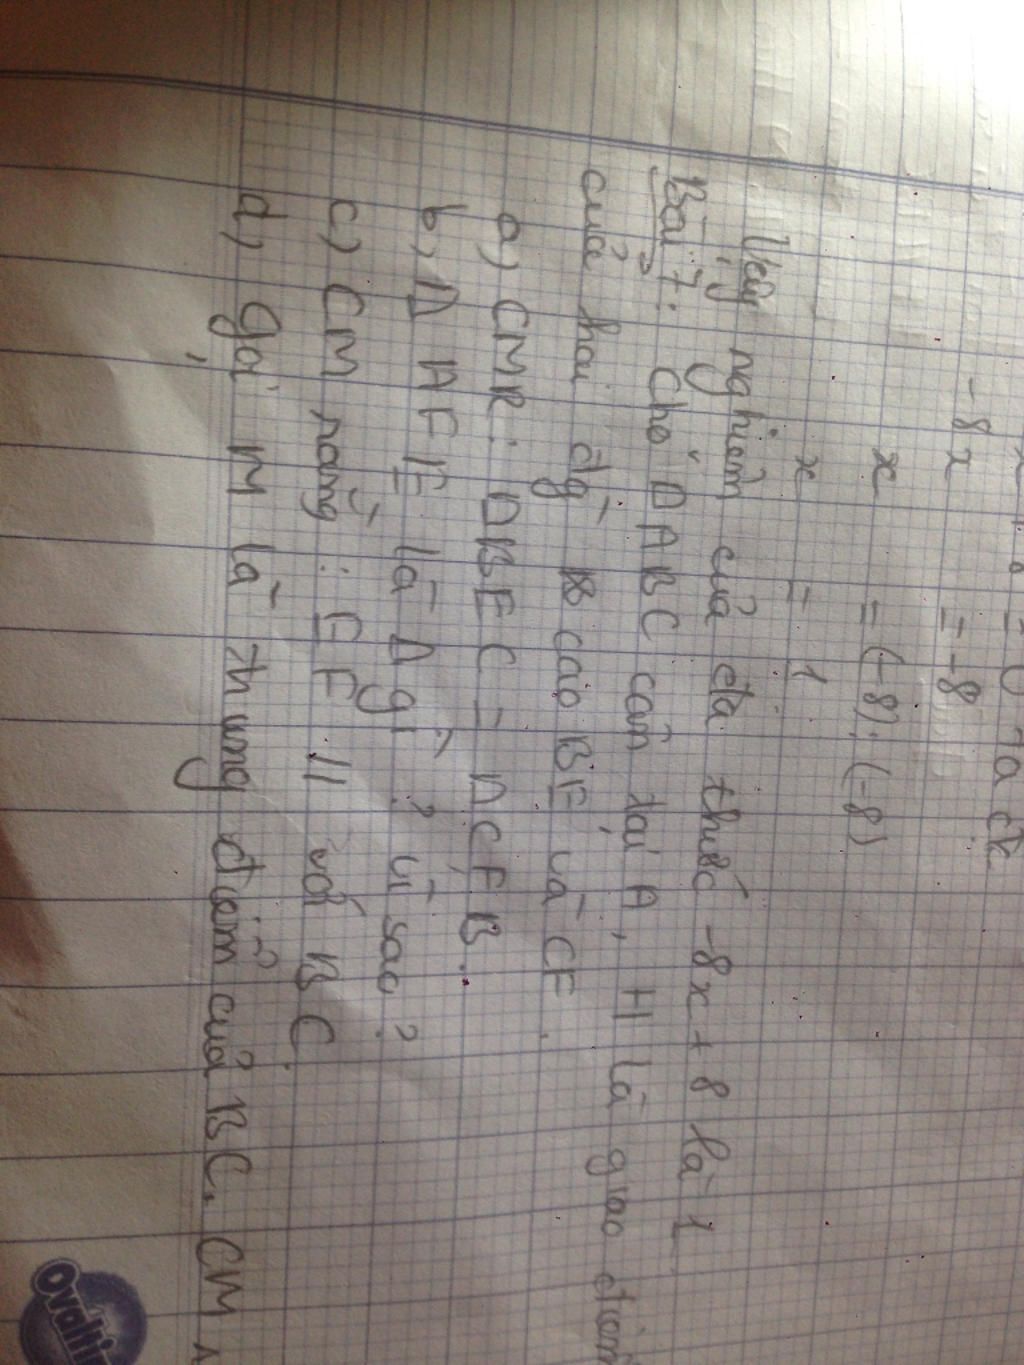 = 0 ta đc
-8x = -8
x = (-8):(-8)
x = 1
Vậy nghiệm của đa thức -8x + 8 là 1
Bài 7: Cho ΔABC cân tại A, H là giao điểm
của hai đg cao BE và CF.
a) CMR: ΔBEC = ΔCFB.
b) Δ AFE là Δ gì? Vì sao?
c) CM rằng: EF // với BC.
d) gọi M là trung điểm của BC. CM
Ovaltin